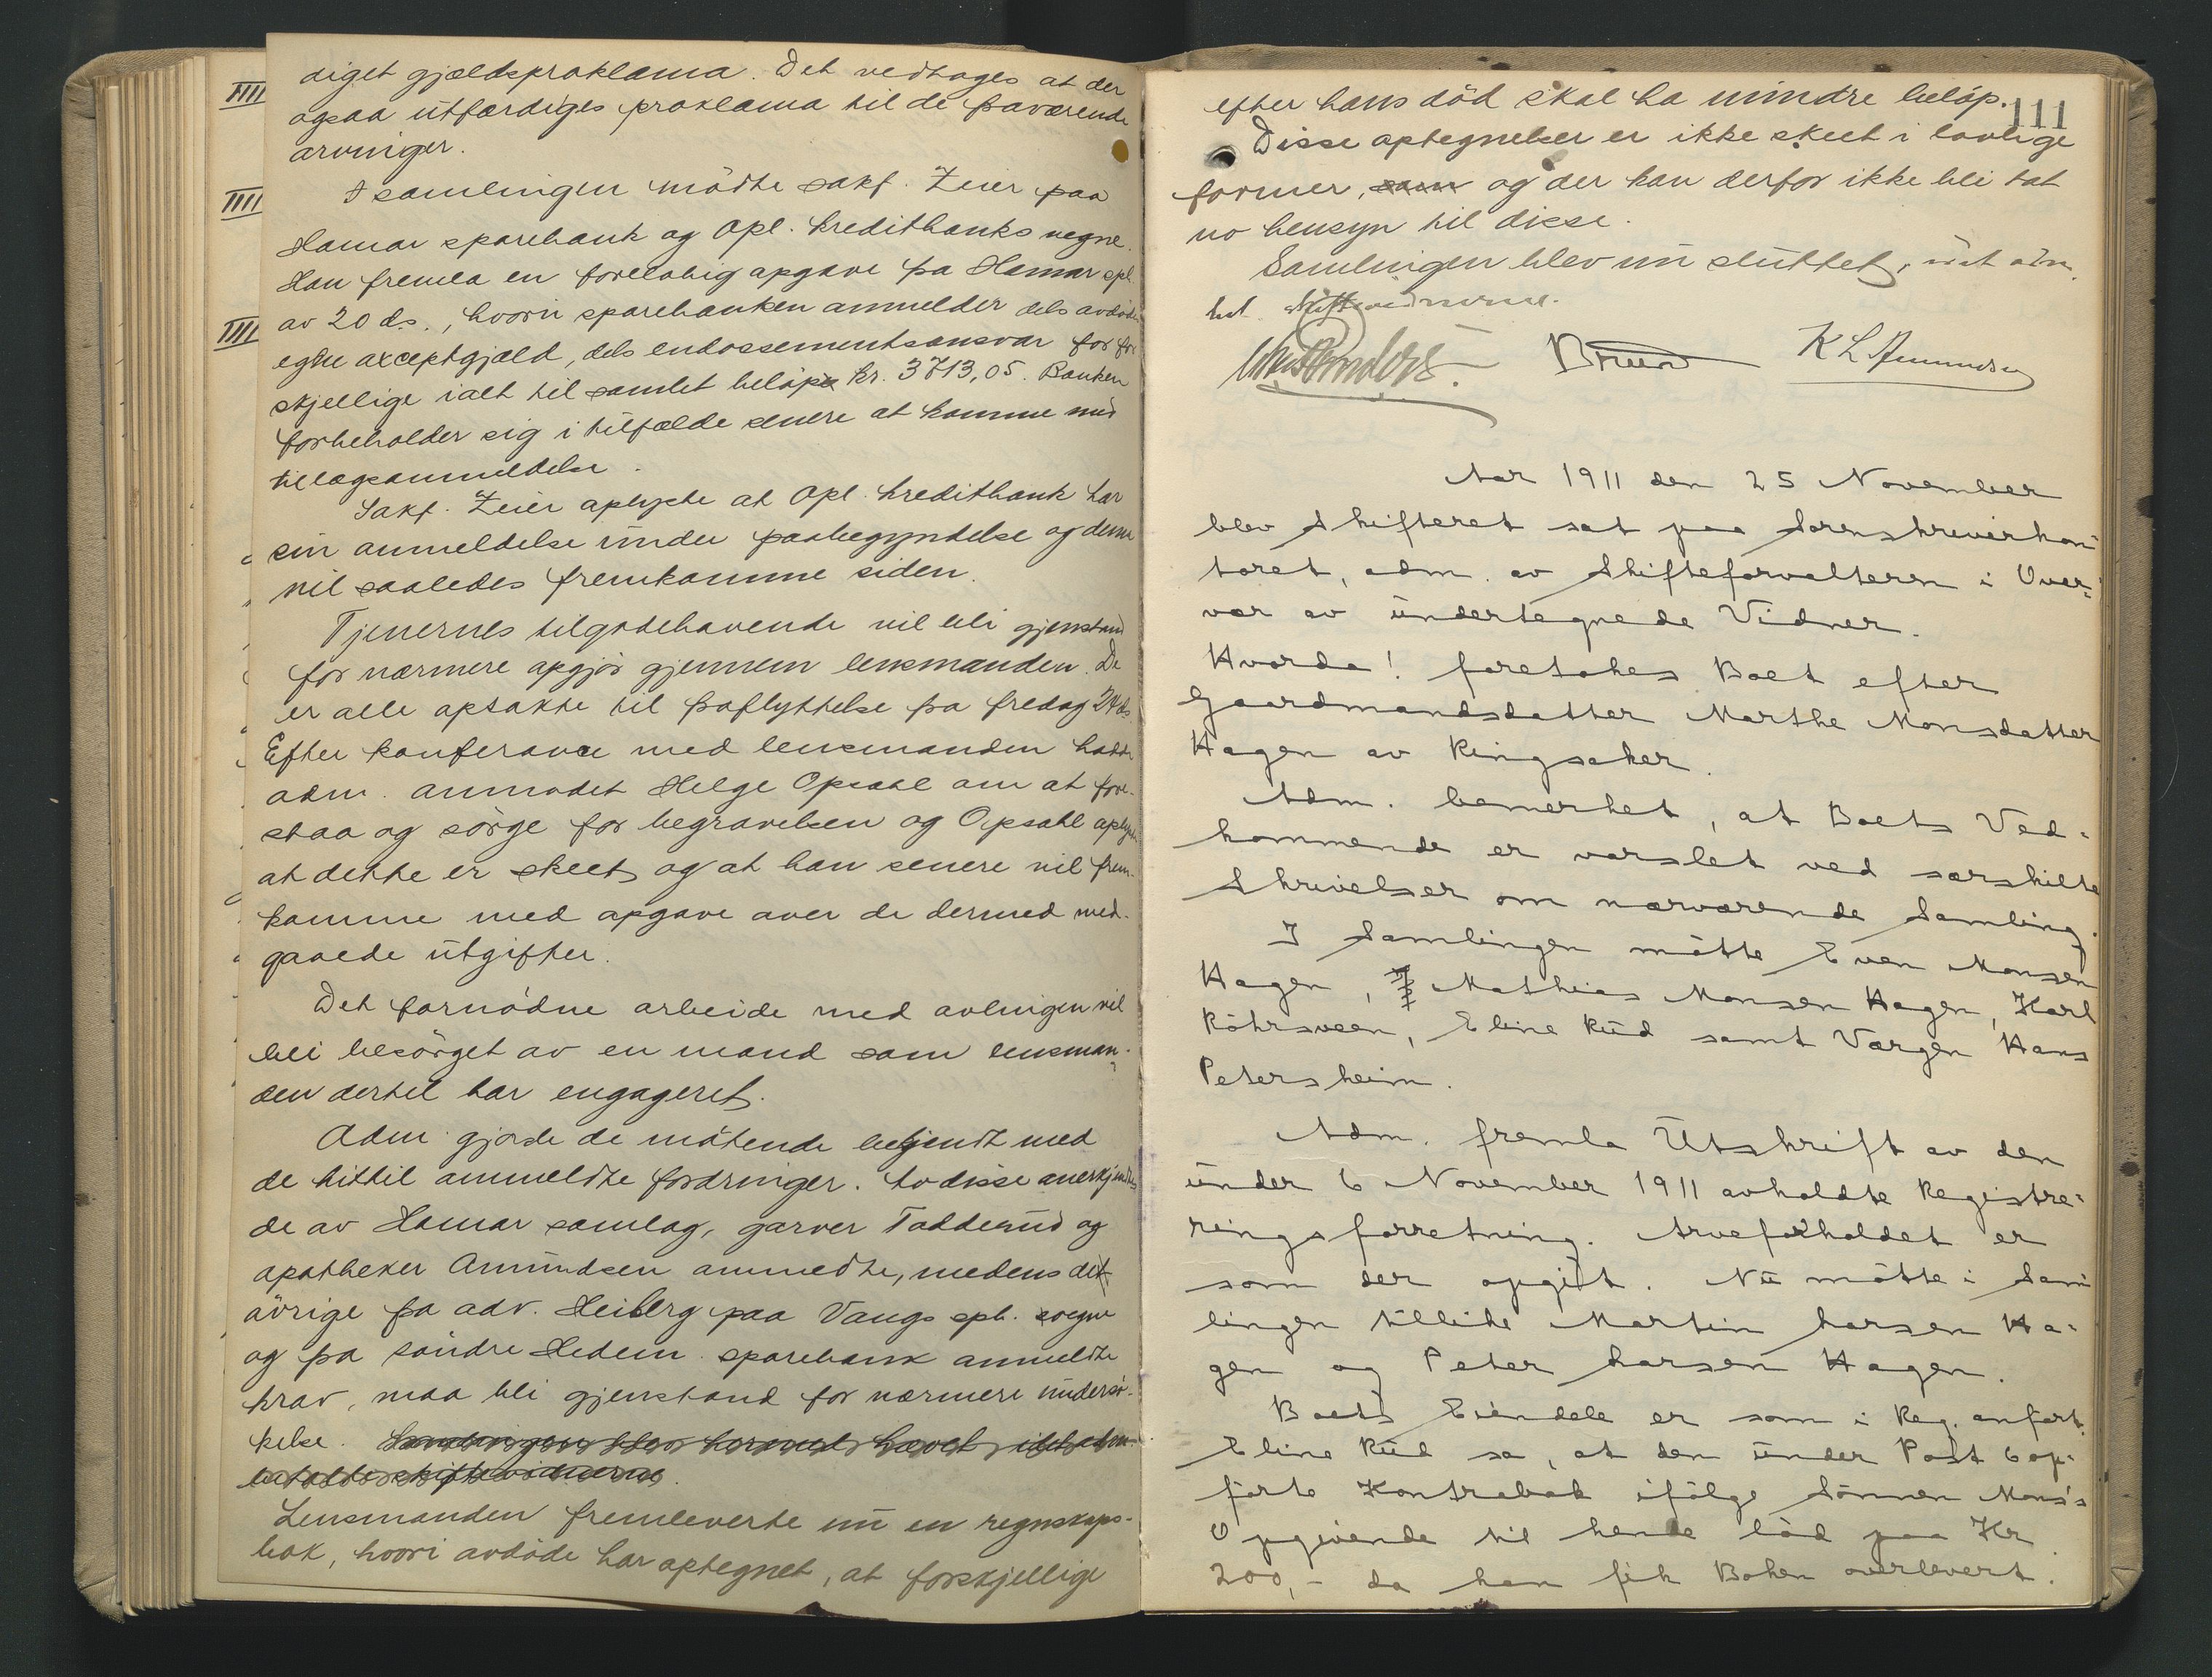 diget gjældsproklama. Det vedtages at der
ogsaa utfærdiges proklama til de fraværende
arvinger.
I samlingen mödte sakf. Zeier paa
Hamar sparebank og Opl. Kreditbanks vegne.
Han fremla en foreløbig opgave fra Hamar spb.
av 20 ds., hvori sparebanken anmelder dels avdødes
egne axceptgjæld, dels endossementsansvar for for
skjellige ialt til samlet beløp kr. 3713,05. Banken
forbeholder sig i tilfælde senere at komme med
tillægsanmeldelse.
Sakf. Zeier oplyste at Opl. Kreditbank har
sin anmeldelse under paabegyndelse og denne
vil saaledes fremkomme siden.
Tjenernes tilgodehavende vil bli gjenstand
for nærmere opgjör gjennem lensmanden. De
er alle opsakte til fraflyttelse fra fredag 24 ds
Efter konferance med lensmanden hadde
adm. anmodet Helge Opsahl om at fore-
staa og sörge for begravelsen og Opsahl oplyste
at dette er skeet og at han senere vil frem-
komme med opgave over de dermed med-
gaaede utgifter.
Det fornödne arbeide med avlingen vil
bli besörget av en mand som lensman-
den dertil har engageret.
Adm. gjorde de mötende bekjendt med
de hittil anmeldte fordringer. Av disse anerkjendtes
de av Hamar samlag, garver Todderud og
apotheker Amundsen anmeldte, medens det
övrige fra adv. Heiberg paa Vangs spb. vegne
og fra söndre Hedem. sparebank anmeldte
krav, maa bli gjenstand for nærmere undersö-
kelse. Samlingen blev hermed hævet, idet adm.
betalte skiftevidnerne.
Lensmanden fremleverte nu en regnskaps-
bok, hvori avdöde har optegnet, at forskjellige
111
efter hans död skal ha mindre beløp.
Disse optegnelser er ikke skeet i lovlige
former, som og der kan derfor ikke bli tat
no hensyn til disse.
Samlingen blev nu sluttet, idet adm.
bet. skiftevidnerne.
Bruun K L Amundsen
Aar 1911 den 25 November
blev Skifteret sat paa Sorenskriverkon-
toret, adm. av Skifteforvalteren i Over-
vær av undertegnede Vidner.
Hvorda! foretokes Boet efter
Gaardmandsdatter Marthe Monsdatter
Hagen av Ringsaker.
Adm. bemerket, at Boets Ved-
kommende er varslet ved særskilte
Skrivelser om nærværende Samling.
I Samlingen mötte Even Monsen
Hagen, Mathias Monsen Hagen, Karl
Röhrsveen, Eline Rud samt Værgen Hans
Petersheim.
Adm. fremla Utskrift av den
under 6 November 1911 avholdte Registre-
ringsforretning. Arveforholdet er
som der opgit. Nu mötte i Sam-
lingen tillike Martin Larsen Ha-
gen og Peter Larsen Hagen.
Boets Eiendele er som i Reg. anfört.
Eline Rud sa, at den under Post 6 op-
förte Kontrabok ifölge Sönnen Mons's
Opgivende til hende löd paa Kr
200,- da han fik Boken overlevert.